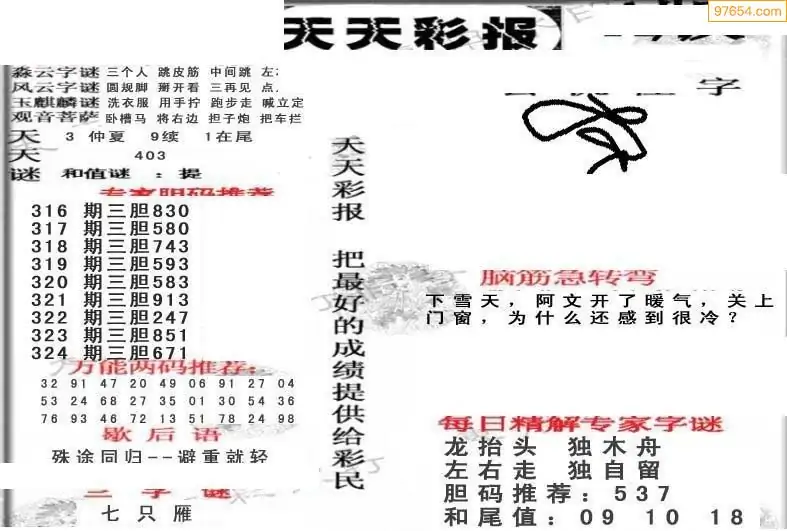 97654.com
天天彩报
字
森云字谜 三个人 跳皮筋 中间跳 左
风云字谜 圆规脚 掰开看 三再见 点
玉麒麟谜 洗衣服 用手拧 跑步走 喊立定
观音菩萨 卧槽马 将右边 担子炮 把车拦
天 3 仲夏 9续 1在尾
天 403
谜 和值谜 : 提
专家胆码推荐
316 期三胆830
317 期三胆580
318 期三胆743
319 期三胆593
320 期三胆583
321 期三胆913
322 期三胆247
323 期三胆851
324 期三胆671
万能两码推荐:
32 91 47 20 49 06 91 27 04
53 24 68 27 35 01 30 54 36
76 93 46 72 13 51 78 24 98
歇后语
殊途同归--避重就轻
三字谜
七只雁
天天彩报 把最好的成绩提供给彩民
脑筋急转弯
下雪天，阿文开了暖气，关上
门窗，为什么还感到很冷？
每日精解专家字谜
龙抬头 独木舟
左右走 独自留
胆码推荐：537
和尾值：09 10 18